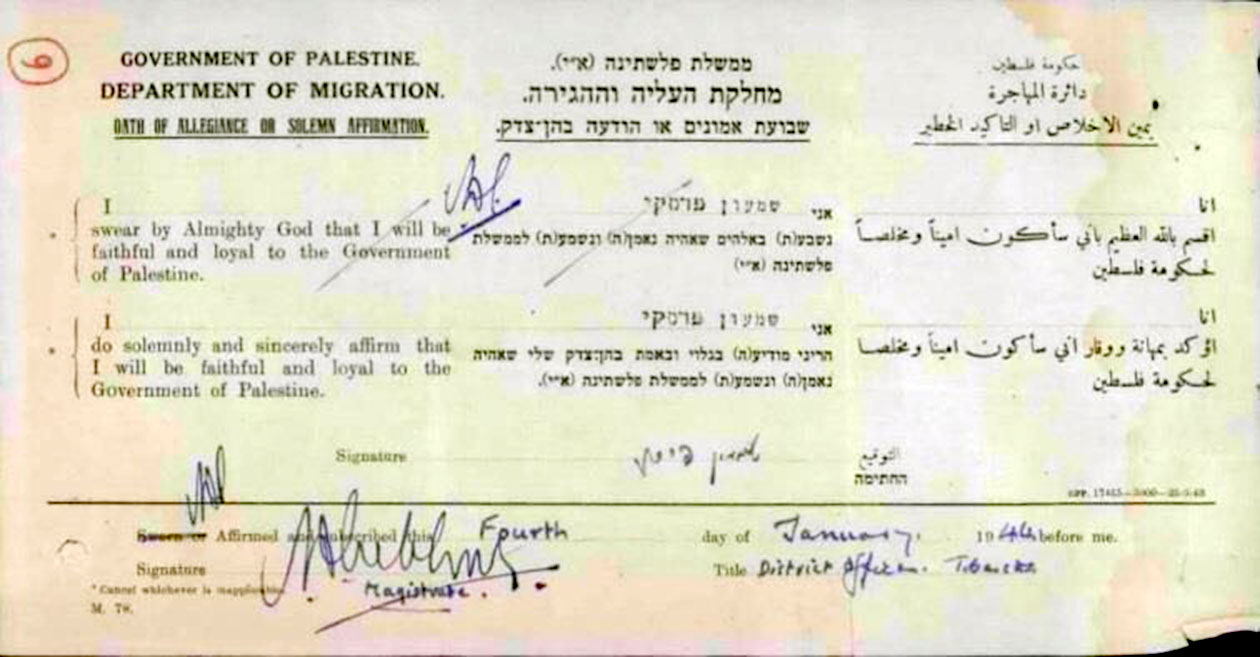 6
GOVERNMENT OF PALESTINE.
DEPARTMENT OF MIGRATION.
OATH OF ALLEGIANCE OR SOLEMN AFFIRMATION.
ממשלת פלשתינה (א״י).
מחלקת העליה וההגירה.
שבועת אמונים או הודעה בהן־צדק.
حكومة فلسطين
دائرة المهاجرة
يمين الاخلاص او التاكيد الخطير
I
swear by Almighty God that I will be
faithful and loyal to the Government
of Palestine.
אני שמעון
נשבע(ת) באלהים שאהיה נאמן(ה) ונשמע(ת) לממשלת
פלשתינה (א״י)
انا
اقسم بالله العظيم باني سأكون اميناً ومخلصاً
لحكومة فلسطين
I
do solemnly and sincerely affirm that
I will be faithful and loyal to the
Government of Palestine.
אני שמעון
הריני מודיע(ה) בגלוי ובאמת בהן־צדק שלי שאהיה
נאמן(ה) ונשמע(ת) לממשלת פלשתינה (א״י).
انا
اؤكد بمهانة ووقار اني سأكون اميناً ومخلصا
لحكومة فلسطين
Signature
التوقيع
החתימה
GPP. 17415—5000—25-3-43
Sworn or Affirmed and subscribed this Fourth day of January. 1944 before me.
Signature
Magistrate.
Title District Officer. Tiberias
* Cancel whichever is inapplicable.
M. 78.